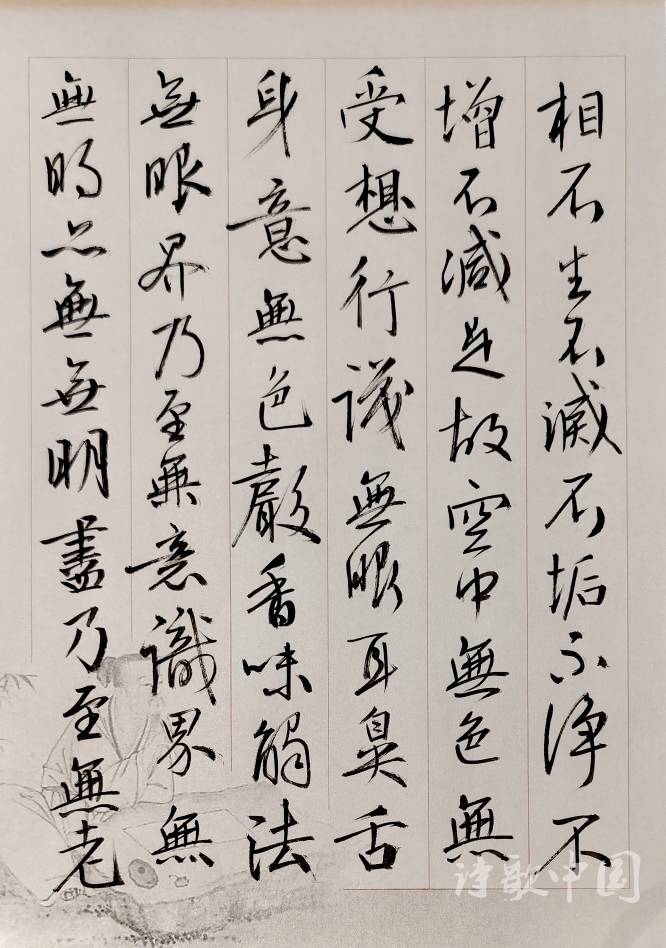 相不生不滅不垢不淨不
增不減是故空中無色無
受想行識無眼耳鼻舌
身意無色聲香味觸法
無眼界乃至無意識界無
無明亦無無明盡乃至無老
诗歌中国